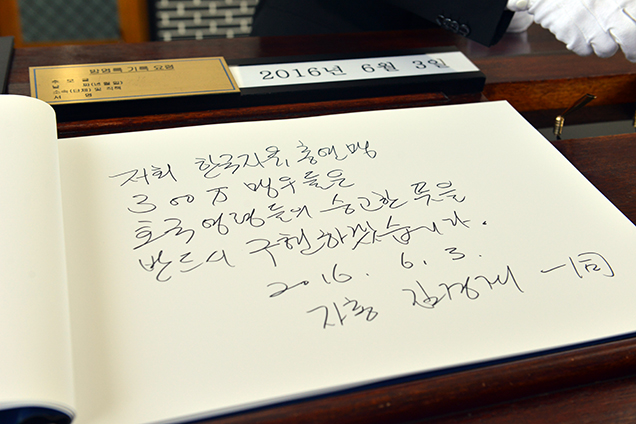 방명록 기록 요령
추 모 글
소속(단체) 및 직책
서 명
2016년 6월 3일
저희 한국자유총연맹
300万 맹우들은
호국영령들의 숭고한 뜻을
반드시 구현하겠습니다.
2016. 6. 3.
자총 김경재 一同